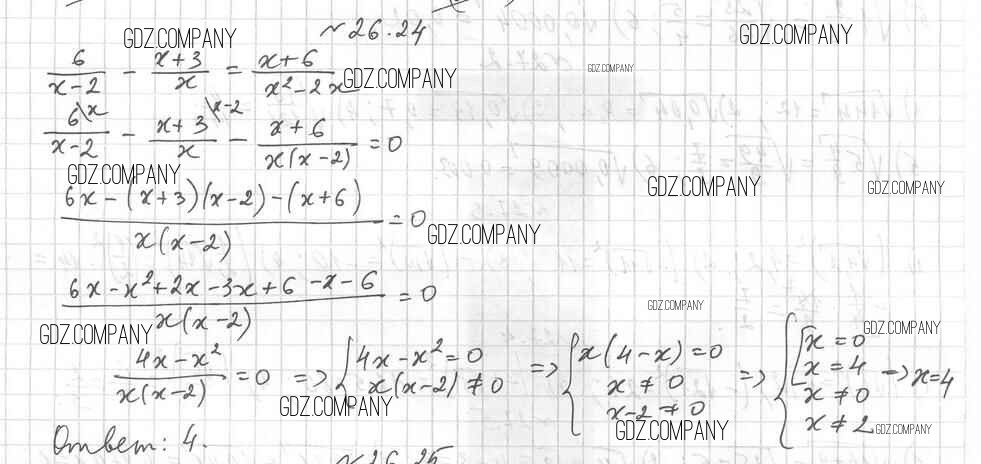 №26.24
GDZ.COMPANY
GDZ.COMPANY
6/(x-2) - (x+3)/x = (x+6)/(x²-2x)
GDZ.COMPANY
GDZ.COMPANY
6\x/(x-2) - (x+3)\x-2/x - (x+6)/(x(x-2)) = 0
GDZ.COMPANY
GDZ.COMPANY
GDZ.COMPANY
(6x-(x+3)(x-2)-(x+6))/(x(x-2)) = 0
GDZ.COMPANY
(6x-x²+2x-3x+6-x-6)/(x(x-2)) = 0
GDZ.COMPANY
GDZ.COMPANY
GDZ.COMPANY
(4x-x²)/(x(x-2)) = 0 => { 4x-x²=0 x(x-2)≠0 => { x(4-x)=0 x≠0 x-2≠0 => { [ x=0 x=4 x≠0 x≠2 → x=4
GDZ.COMPANY
GDZ.COMPANY
GDZ.COMPANY
Ответ: 4.
№26.25